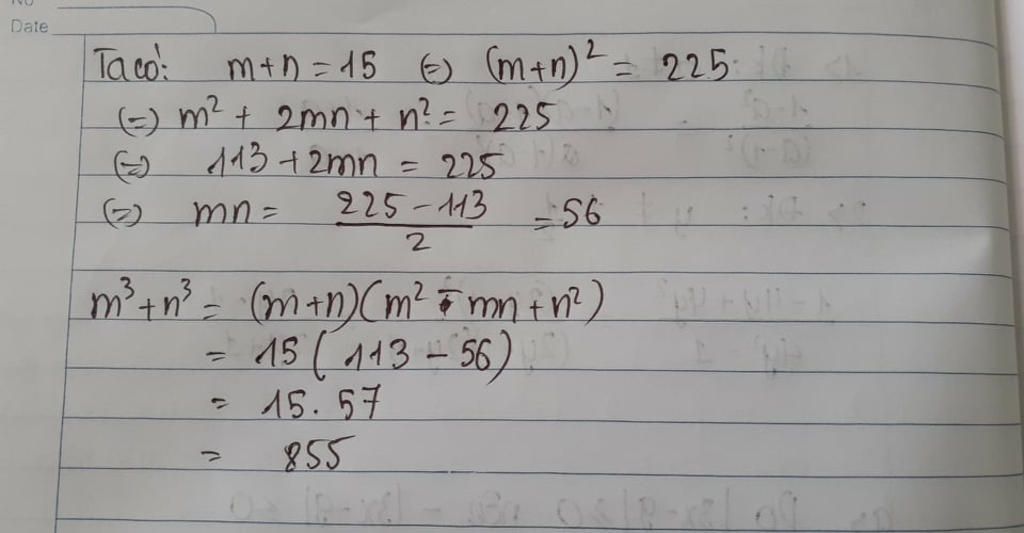 No
Date
Ta có: m+n = 15 (=) (m+n)² = 225
(=) m² + 2mn + n² = 225
(=) 113 + 2mn = 225
(=) mn = \frac{225 - 113}{2} = 56
m³ + n³ = (m+n)(m² - mn + n²)
= 15 ( 113 - 56)
= 15 . 57
= 855